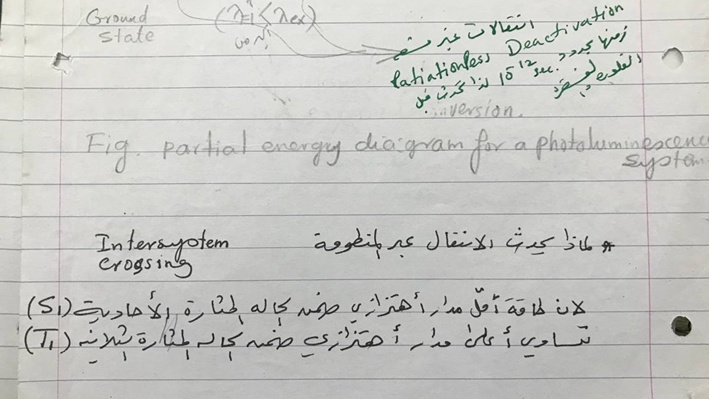 Ground
state
انتقالات غير
Ratiationless Deactivation
زمنها بحدود 10^-12 sec. لذا تحدث قبل
version.
Fig. partial energy diaigram for a photoluminescence
system
* لماذا يحدث الانتقال عبر المنظومة Intersyotem
crossing
لان طاقة أقل مدار أهتزازي ضمن الحاله المثارة الأحادية (S1)
تساوي أعلى مدار أهتزازي ضمن الحاله المثارة الثلاثيه (T1)